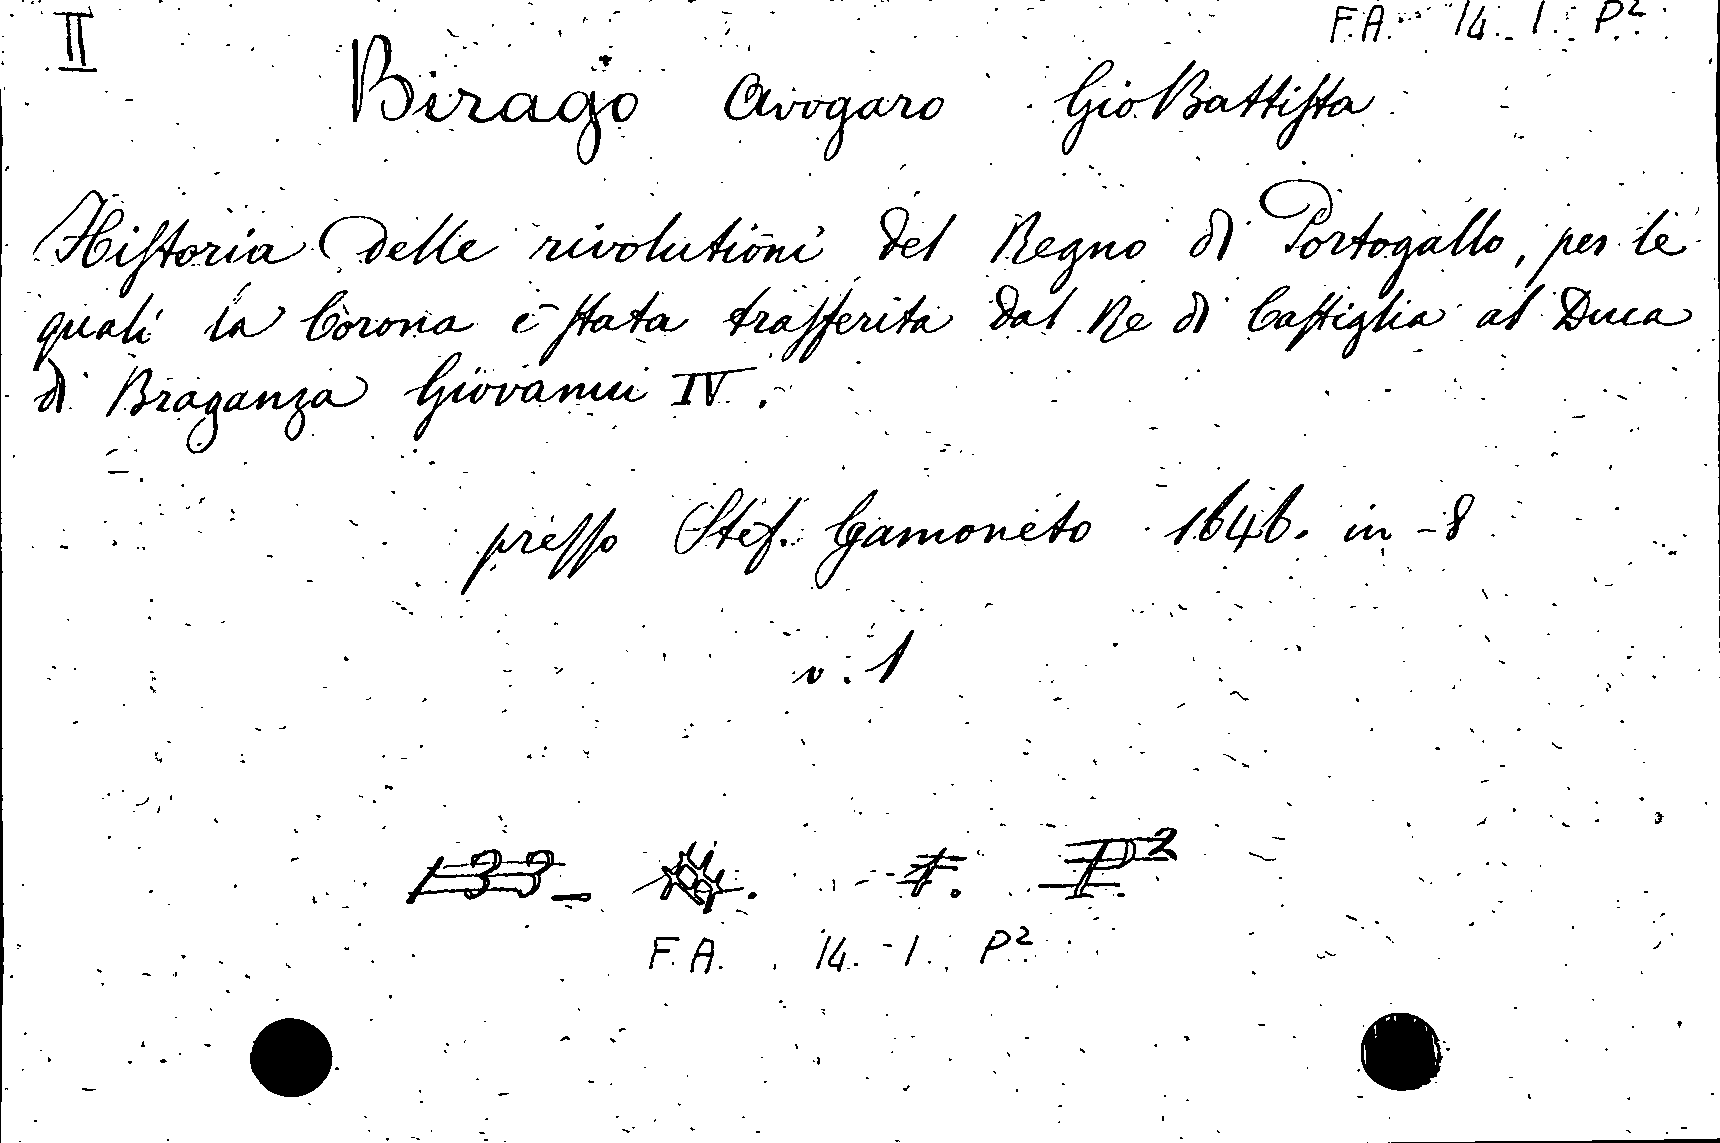 II
F.A. 14. 1. P²
Birago Avogaro Gio Battiſta
Hiſtoria delle rivolutioni del Regno di Portogallo, per le
quali la Corona è ſtata traſferita dal Re di Caſtiglia al Duca
di Braganza Giovanni IV.
preſſo Stef. Gamoneto 1646. in-8
v. 1
133_ . 7. P²
F.A. 14. -1. P²